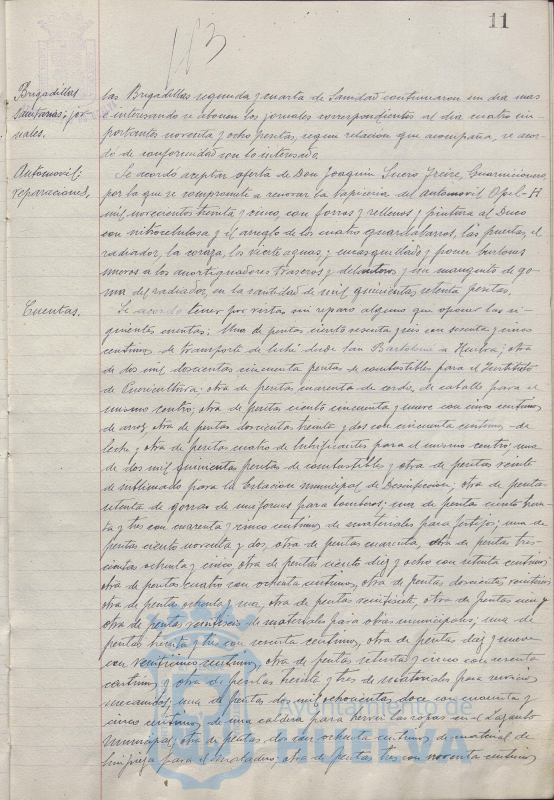 11
113
Brigadillas
Sanitarias: jor-
nales.
las Brigadillas segunda y cuarta de Sanidad continuaron un día mas
e interesando se abonen los jornales correspondientes al día cuatro im-
portantes noventa y ocho pesetas, segun relacion que acompaña, se acor-
dó de conformidad con lo interesado.
Automovil:
reparaciones.
Se acordó aceptar oferta de Don Joaquin Suero Freire, Guarnicionero,
por la que se compromete a renovar la tapiceria del automovil Opel-H
mil novecientos treinta y cinco, con forros y rellenos y pintura al Duco
con nitrocelulosa y el arreglo de los cuatro guardabarros, las puertas, el
radiador, la coraza, los vierte aguas y encasquillado y poner
nuevos a los amortiguadores traseros y delanteros y un manguito de go-
ma del radiador, en la cantidad de mil quinientas setenta pesetas.
Cuentas.
Se acordó tener por vistas, sin reparo alguno que oponer las si-
guientes cuentas: Una de pesetas ciento sesenta y seis con sesenta y cinco
centimos de transporte de leche desde San Bartolome a Huelva; otra
de dos mil doscientas cincuenta pesetas de combustibles para el Instituto
de Puericultura; otra de pesetas cuarenta de cerdo, de caballo para el
mismo centro; otra de pesetas ciento cincuenta y nueve con cinco centimos
de arroz, otra de pesetas doscientas treinta y dos con cincuenta centimos, de
leche y otra de pesetas cuatro de lubrificantes para el mismo centro; una
de dos mil quinientas pesetas de combustible y otra de pesetas veinte
de sublimado para la Estacion Municipal de Desinfeccion; otra de pesetas
setenta de gorras de uniformes para bomberos; una de pesetas ciento
ta y tres con cuarenta y cinco centimos de materiales para festejos; una de
pesetas ciento noventa y dos, otra de pesetas cuarenta, otra de pesetas tres-
cientas ochenta y cinco, otra de pesetas ciento diez y ocho con setenta centimos,
otra de pesetas cuatro con ochenta centimos, otra de pesetas doscientas veintiseis
otra de pesetas ochenta y una, otra de pesetas veintisiete, otra de pesetas
otra de pesetas veintiseis de materiales para obras municipales; una de
pesetas treinta y tres con sesenta centimos, otra de pesetas diez y nueve
con veinticinco centimos, otra de pesetas setenta y cinco con sesenta
centimos y otra de pesetas treinta y tres de materiales para servicios
mecanicos; una de pesetas dos mil ochocientas doce con cuarenta y
cinco centimos de una caldera para hervir las ropas en el Lazareto
Municipal; otra de pesetas dos con ochenta centimos de material de
limpieza para el Matadero; otra de pesetas tres con noventa centimos
Ayuntamiento de
HUELVA